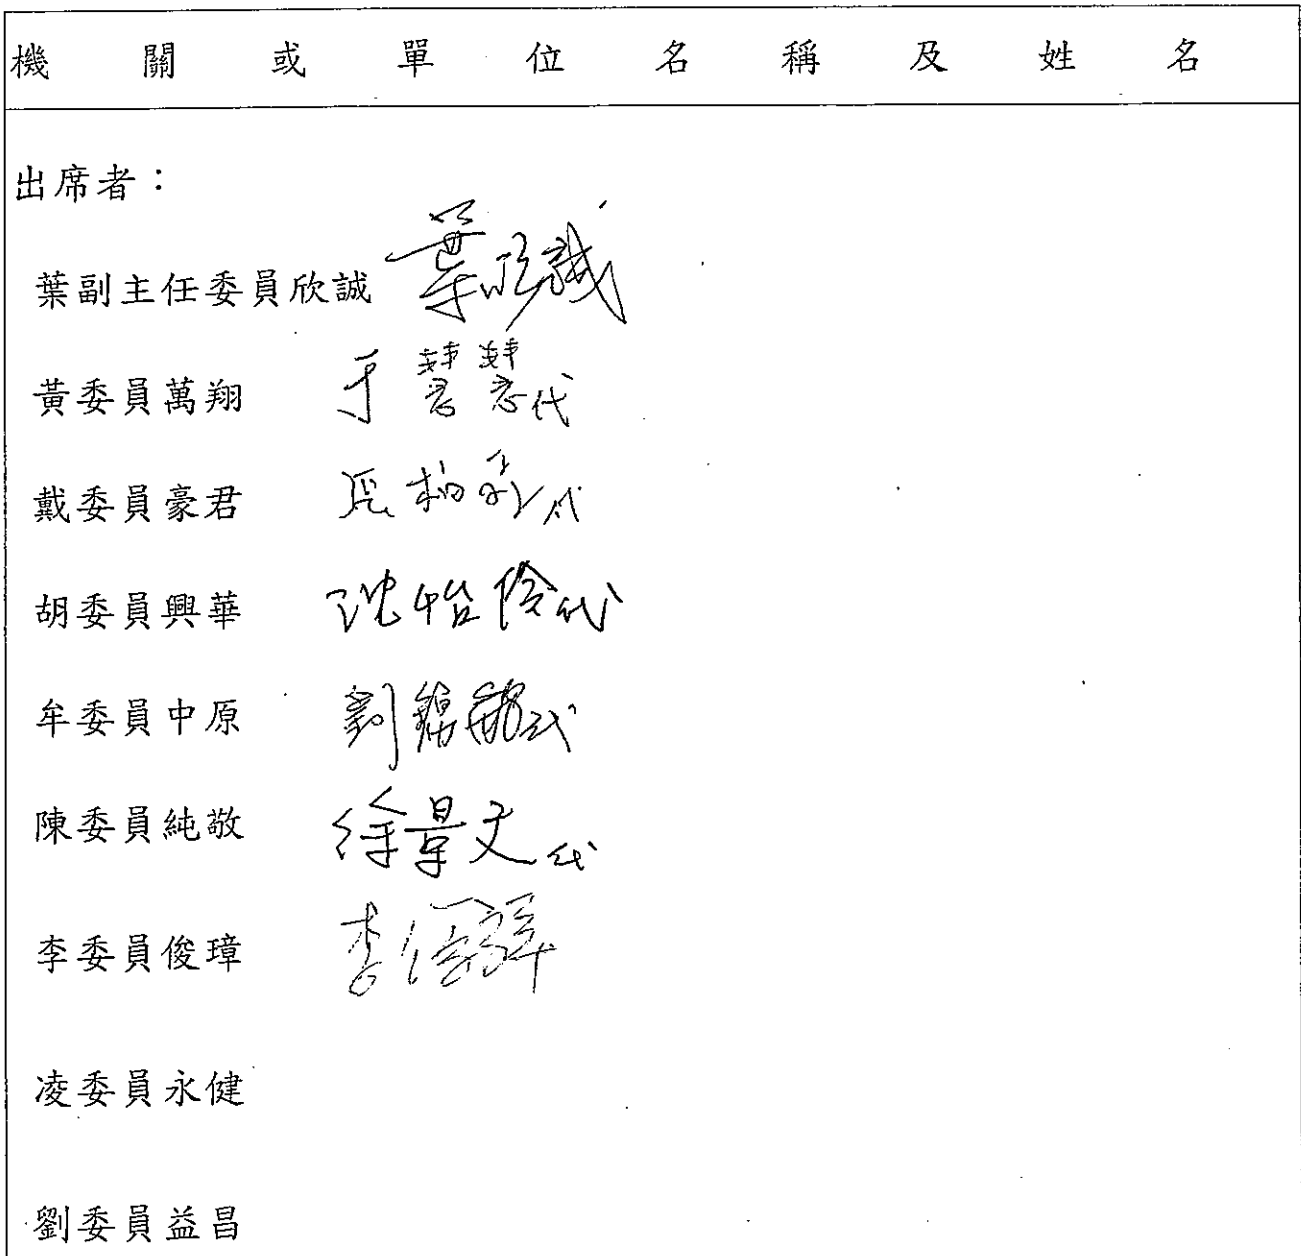 機關或單位名稱及姓名
出席者：
葉副主任委員欣誠 葉欣誠
黃委員萬翔 于慧慧代
戴委員豪君 代
胡委員興華 沈怡伶代
牟委員中原 劉錦龍代
陳委員純敬 徐景文代
李委員俊璋 李俊璋
凌委員永健
劉委員益昌